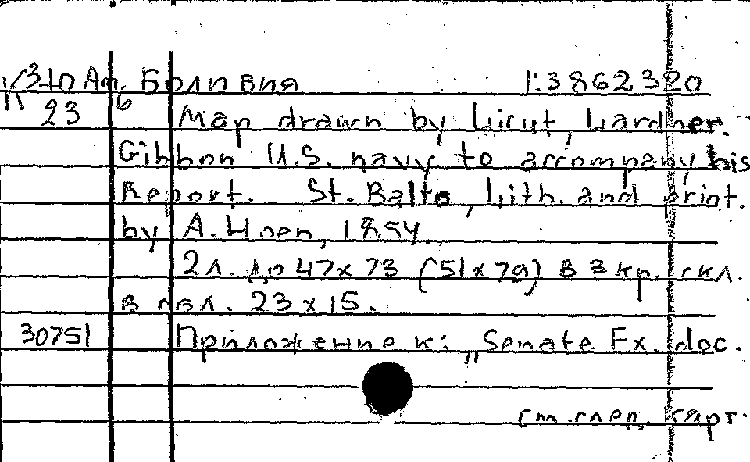 К 3-10 Ам. Боливия 1:3862320
23 6 Map drawn by Lieut, Lardner.
Gibbon U.S. navy to accompany his
Report. St. Balto, lith. and print.
by A. Hoen, 1854.
2л. до 47x73 (51x79) в 3 кр. скл.
в пол. 23x15.
30751 Приложение к: „Senate Ex. doc.
см. след. карт.